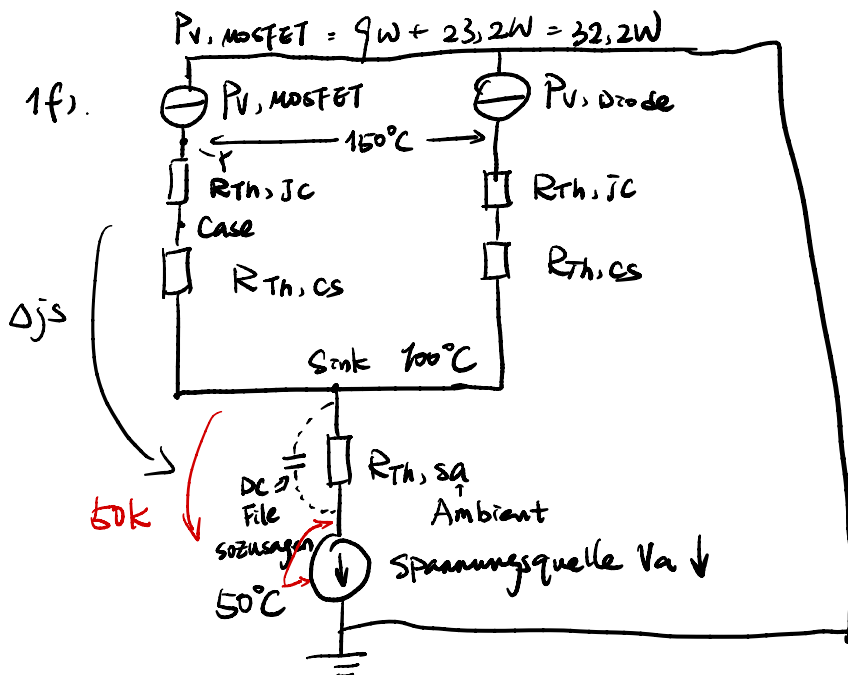 Pv, MOSFET = 9W + 23,2W = 32,2W
1f).
Pv, MOSFET
Pv, Diode
150°C
RTh, JC
RTh, jc
Case
RTh, CS
RTh, CS
Δjs
Sink 100°C
RTh, sa
DC
File
sozusagen
Ambient
50K
50°C
Spannungsquelle Va ↓